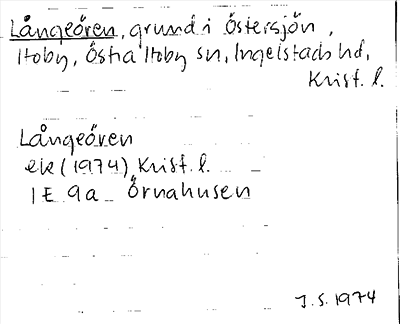 Långeören, grund i Östersjön,
Hoby, Östra Hoby sn, Ingelstads hd,
Krist. l.
Långeören
ek (1974) Krist. l.
1E 9a Örnahusen
J. S. 1974